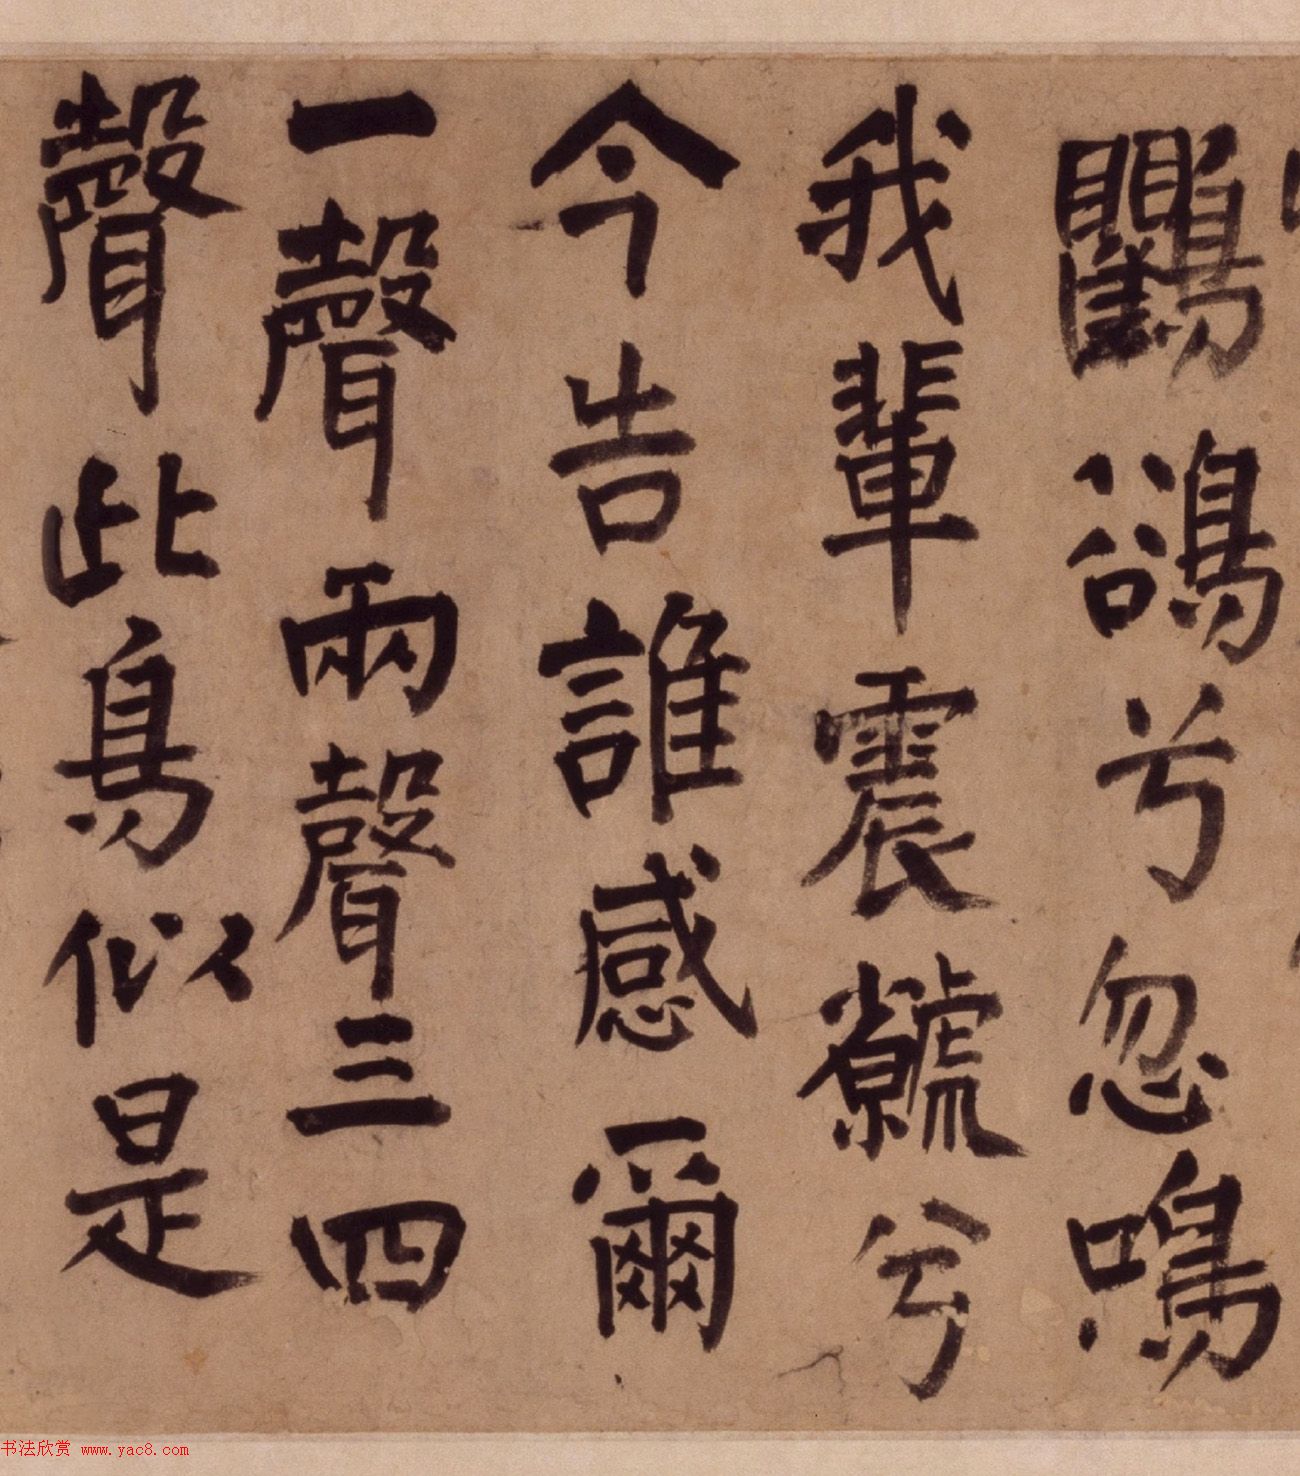 鸜鵒兮忽鳴
我輩震虩兮
今告誰感爾
一聲兩聲三四
聲此鳥似是
书法欣赏 www.yac8.com